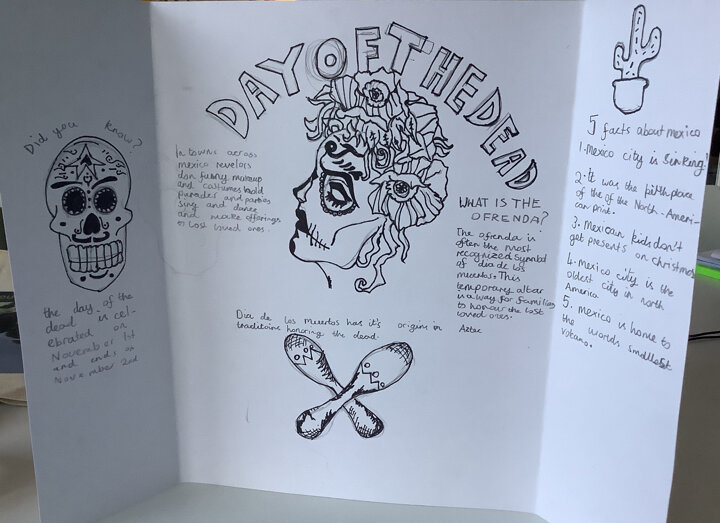 Did you know?
the day of the
dead is cel-
ebrated on
November 1st
and ends on
November 2nd
DAY OF THE DEAD
In towns across
mexico revelors
don funny makeup
and costumes hold
parades and parties
sing and dance
and make offerings
to lost loved ones.
WHAT IS THE
OFRENDA?
The ofrenda is
often the most
recognized symbol
of dia de los
muertos. This
temporary altar
is a way for families
to honour the lost
loved ones.
Dia de los Muertos has it's origins in Aztec
traditoins honoring the dead.
5 facts about mexico
1. Mexico city is sinking!
2. It was the birth place
of the of the North-Ameri-
can print.
3. Mexican kids don't
get presents on christmas
4. mexico city is the
oldest city in north
America
5. mexico is home to
the worlds smallest
volcano.